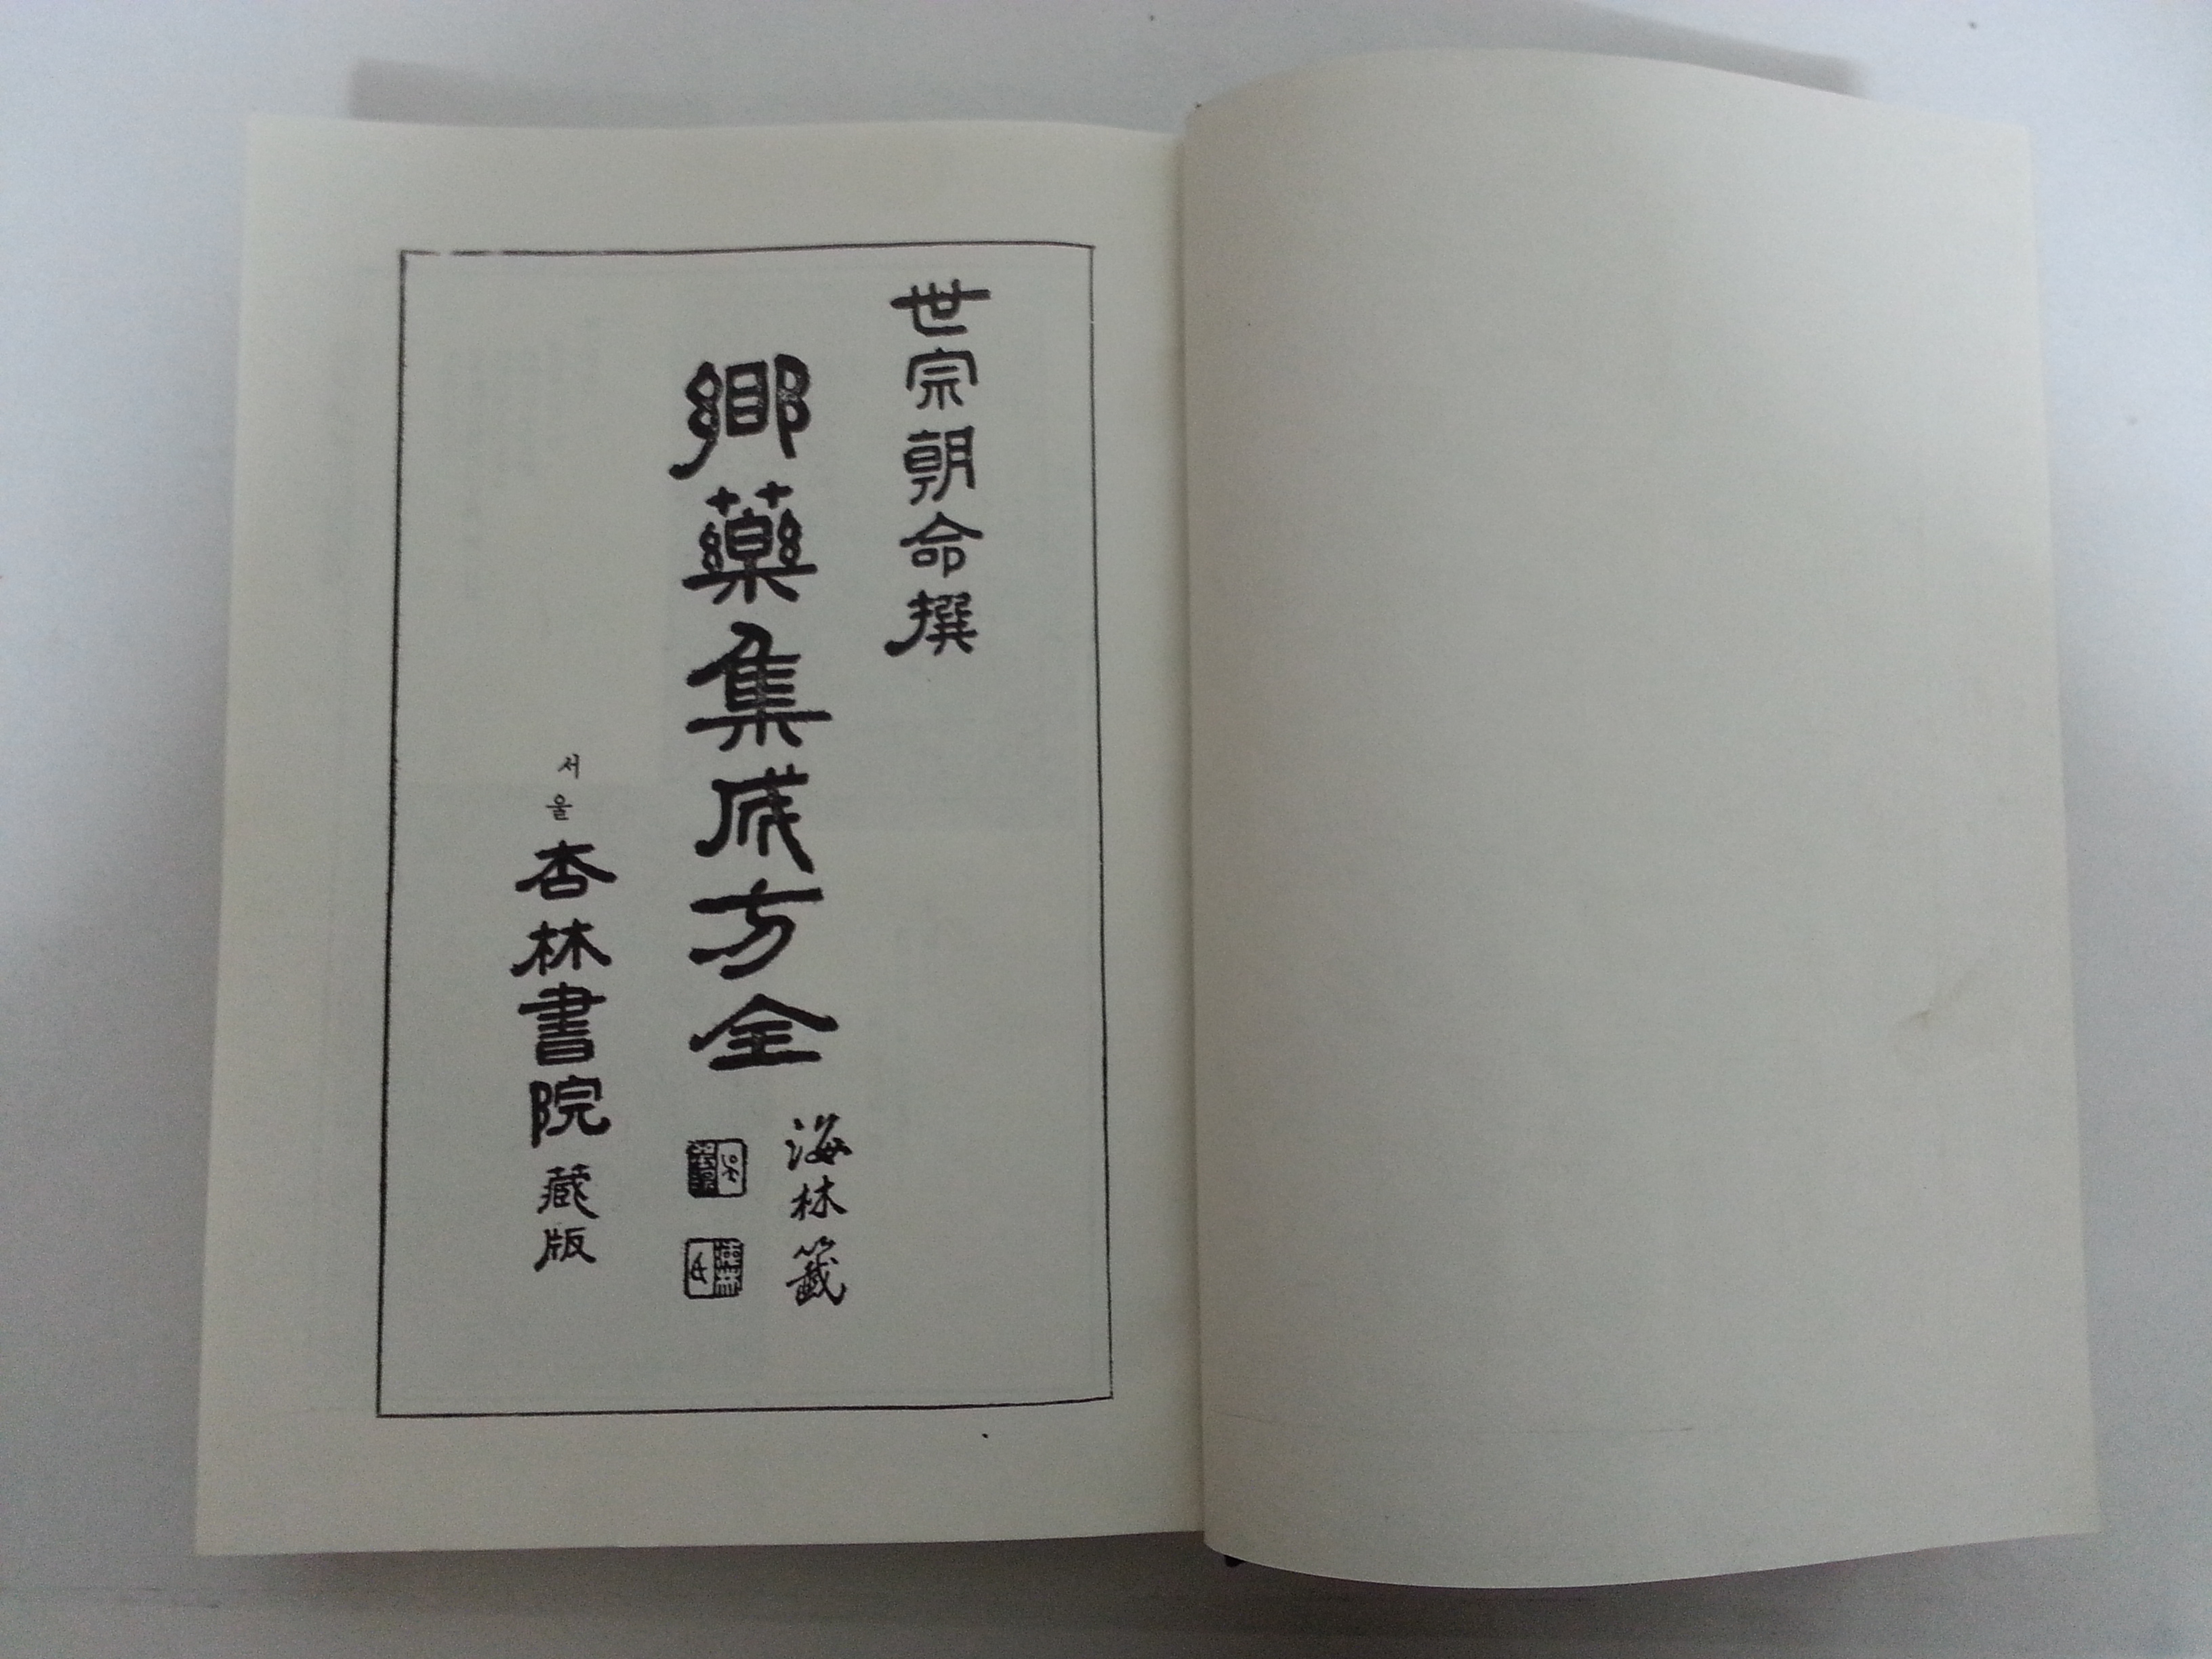 世宗朝命撰
鄕藥集成方全
海林籤
서울 杏林書院藏版